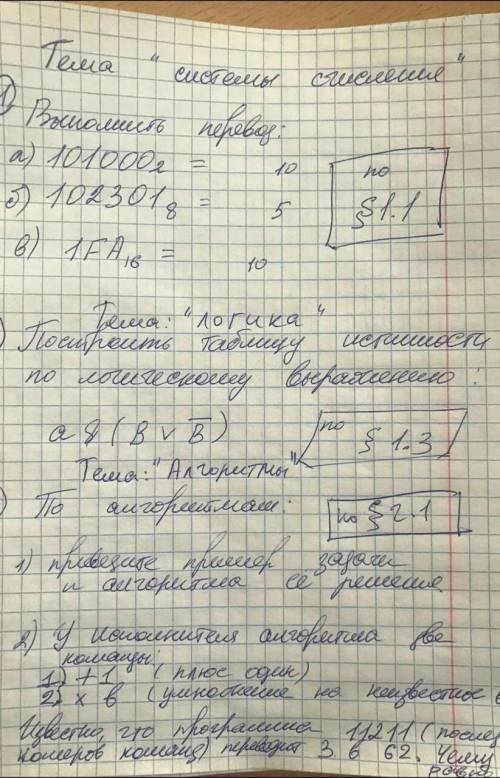 Тема "системы счисления"
1) Выполнить перевод:
а) 101000₂ = ₁₀
по
§1.1
б) 102301₈ = ₅
в) 1FA₁₆ = ₁₀
Тема: "логика"
) Построить таблицу истинности
по логическому выражению:
a & (B v B̅)
по § 1.3
Тема: "Алгоритмы"
) По алгоритмам:
по §2.1
1) приведите пример задачи
и алгоритма её решения.
2) У исполнителя алгоритма две
команды:
1) +1 (плюс один)
2) x в (умножение на неизвестное в
Известно, что программа 11211 (послед
номеров команд) переводит 3 в 62. Чему